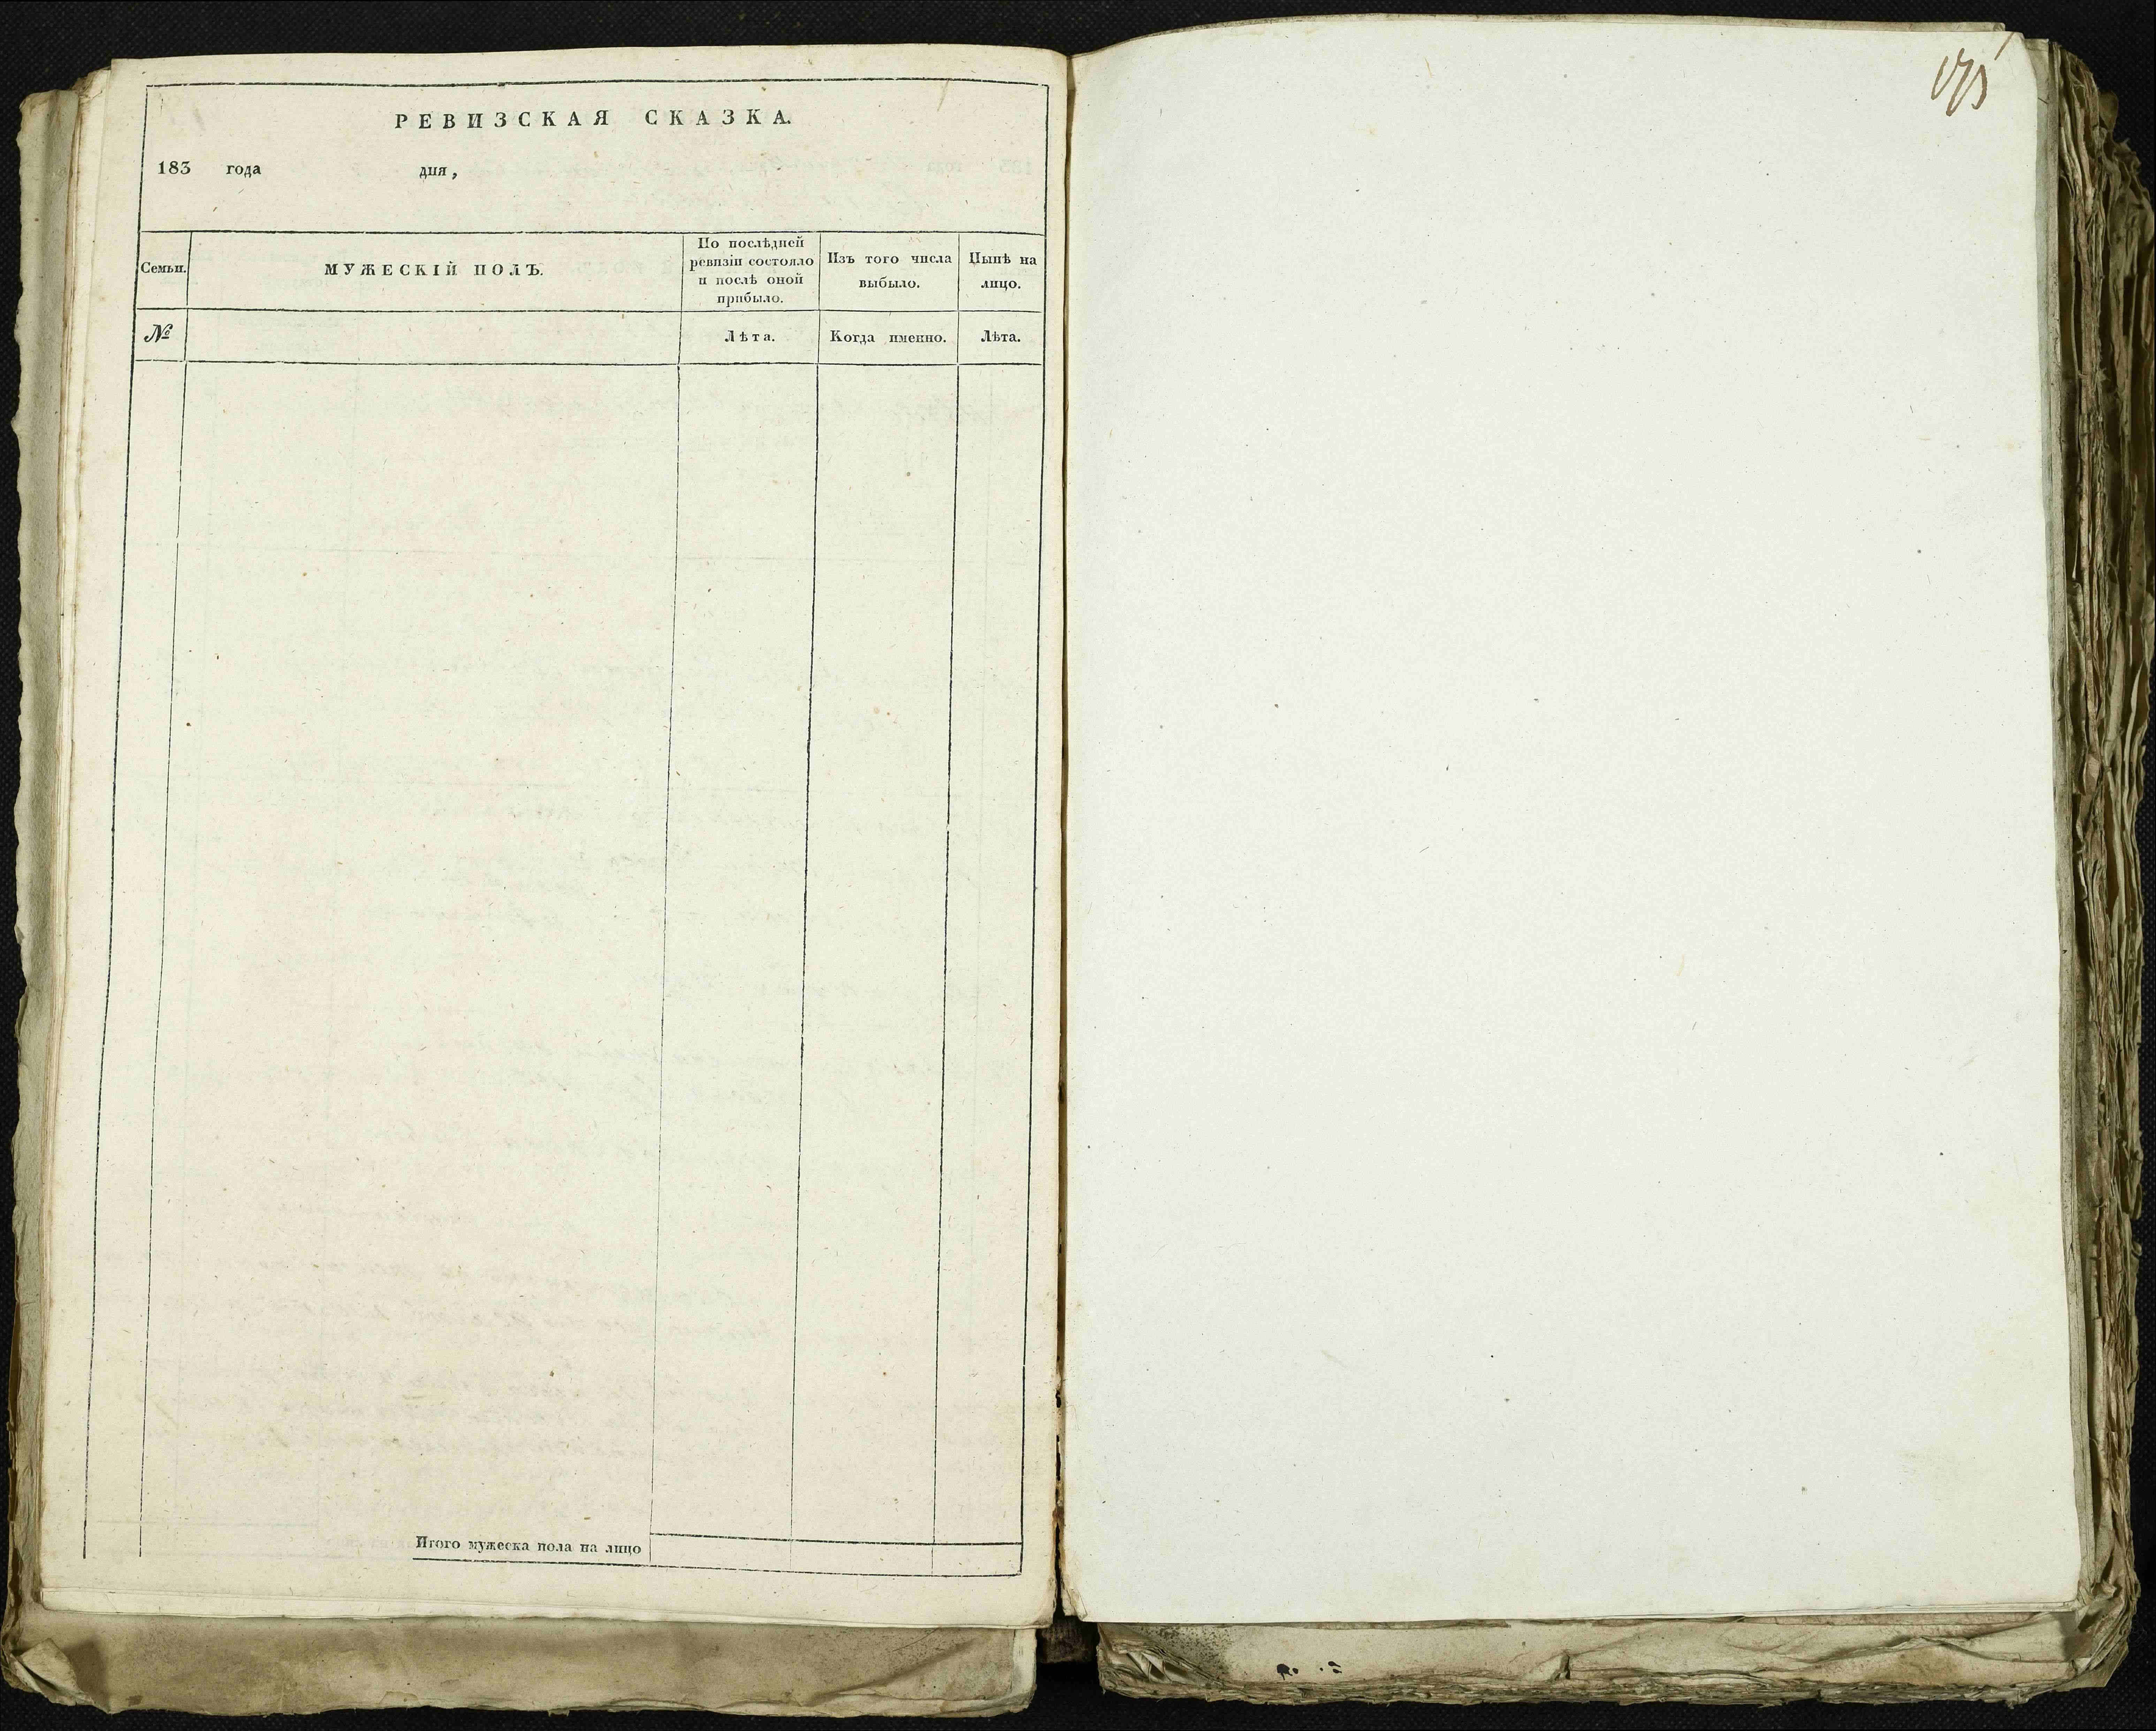 РЕВИЗСКАЯ СКАЗКА.
183 года дня,
Семьи.
МУЖЕСКІЙ ПОЛЪ.
По послѣдней
ревизіи состояло
и послѣ оной
прибыло.
Изъ того числа
выбыло.
Нынѣ на
лицо.
№
Лѣта.
Когда именно.
Лѣта.
Итого мужеска пола на лицо
175